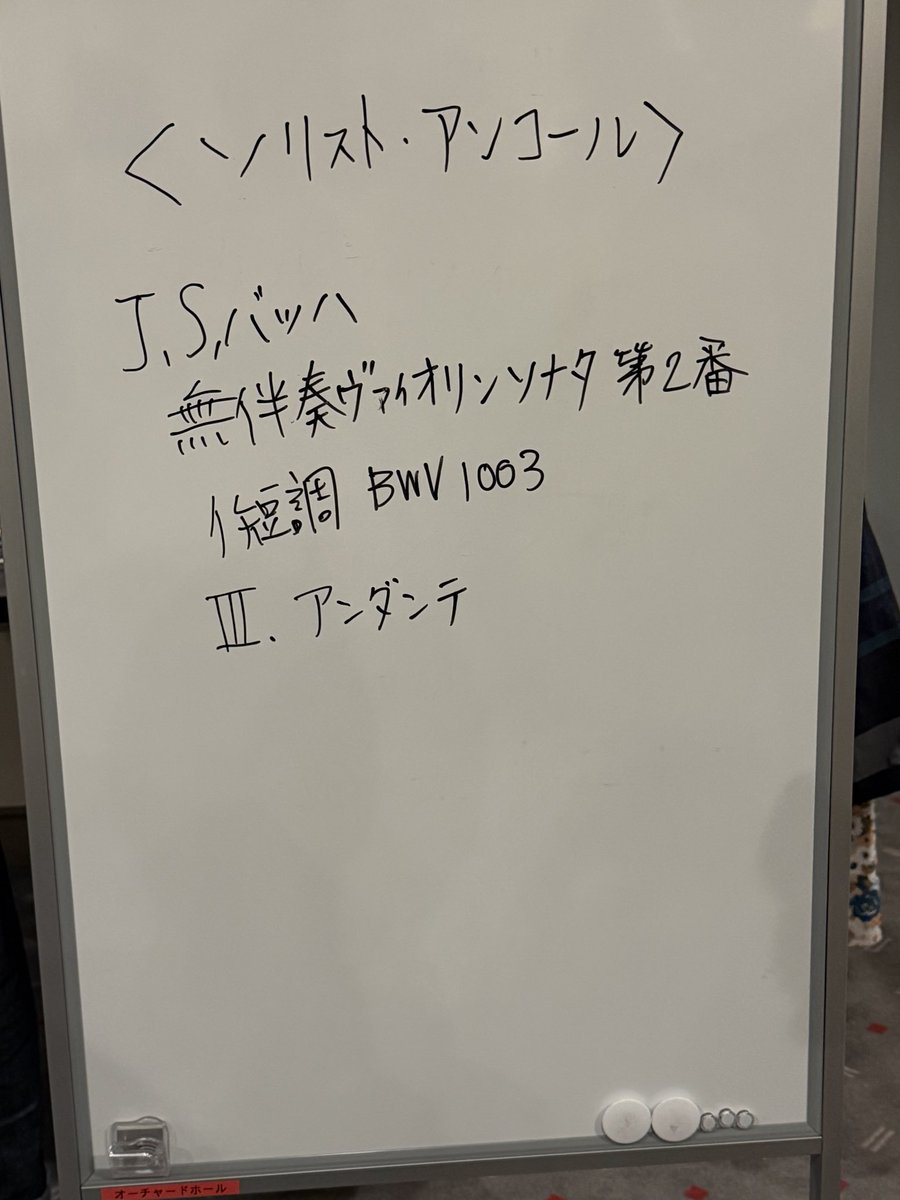 〈ソリスト・アンコール〉
J.S.バッハ
無伴奏ヴァイオリンソナタ 第2番
イ短調 BWV 1003
III. アンダンテ
オーチャードホール